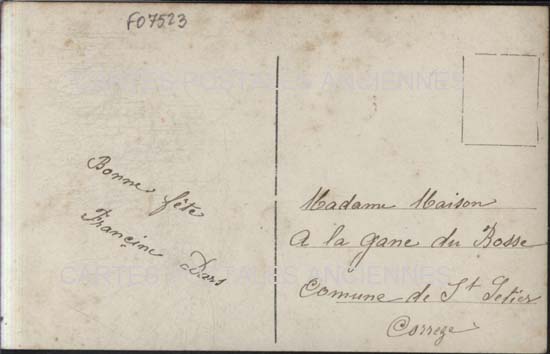 F07523
CARTES POSTALES ANCIENNES
Bonne fête
Francine Dars
Madame Maison
A la gane du Bosse
Comune de St Setier
Correge
CARTES POSTALES ANCIENNES